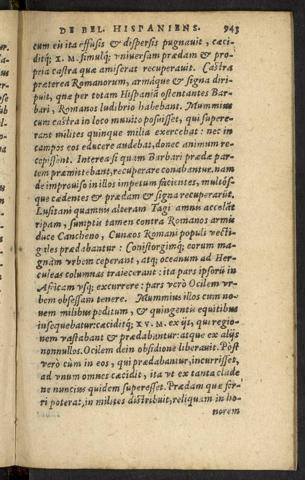 DE BEL. HISPANIENS. 943
cum eū ita effusis & dispersis pugnauit, cæci-
ditq; X. M. simulq; vniuersam prædam & pro-
pria castra quæ amiserat recuperauit. Castra
præterea Romanorum, armáque & signa diri-
puit, quæ per totam Hispaniā ostentantes Bar-
bari, Romanos ludibrio habebant. Mummius
cum castra in loco munito posuisset, qui supere-
rant milites quinque milia exercebat: nec in
campos eos educere audebat, donec animum re-
cepissent. Interea si quam Barbari prædæ par-
tem præmittebant, recuperare conabantur, nam
de improuiso in illos impetum facientes, multós-
que cædentes & prædam & signa recuperarūt.
Lusitani quamuis alteram Tagi amnis accolāt
ripam, sumptis tamen contra Romanos armis
duce Caucheno, Cunæos Romani populi vecti-
gales prædabantur: Conistorgimq; eorum mag-
nam vrbem ceperant, atq; oceanum ad Her-
culeas columnas traiecerant: ita pars ipsorū in
Africam vsq; excurrere: pars verò Ocilem vr-
bem obsessam tenere. Mummius illos cum no-
uem milibus peditum, & quingentis equitibus
insequebatur: cæciditq; XV. M. ex ijs, qui regio-
nem vastabant & prædabantur: atque ex alijs
nonnullos. Ocilem dein obsidione liberauit. Pòst
verò cùm in eos, qui prædabantur, incurrisset,
ad vnum omnes cæcidit, ita vt ex tanta clade
ne nuncius quidem superesset. Prædam quæ fer-
ri poterat, in milites distribuit, reliquam in ho-
norem